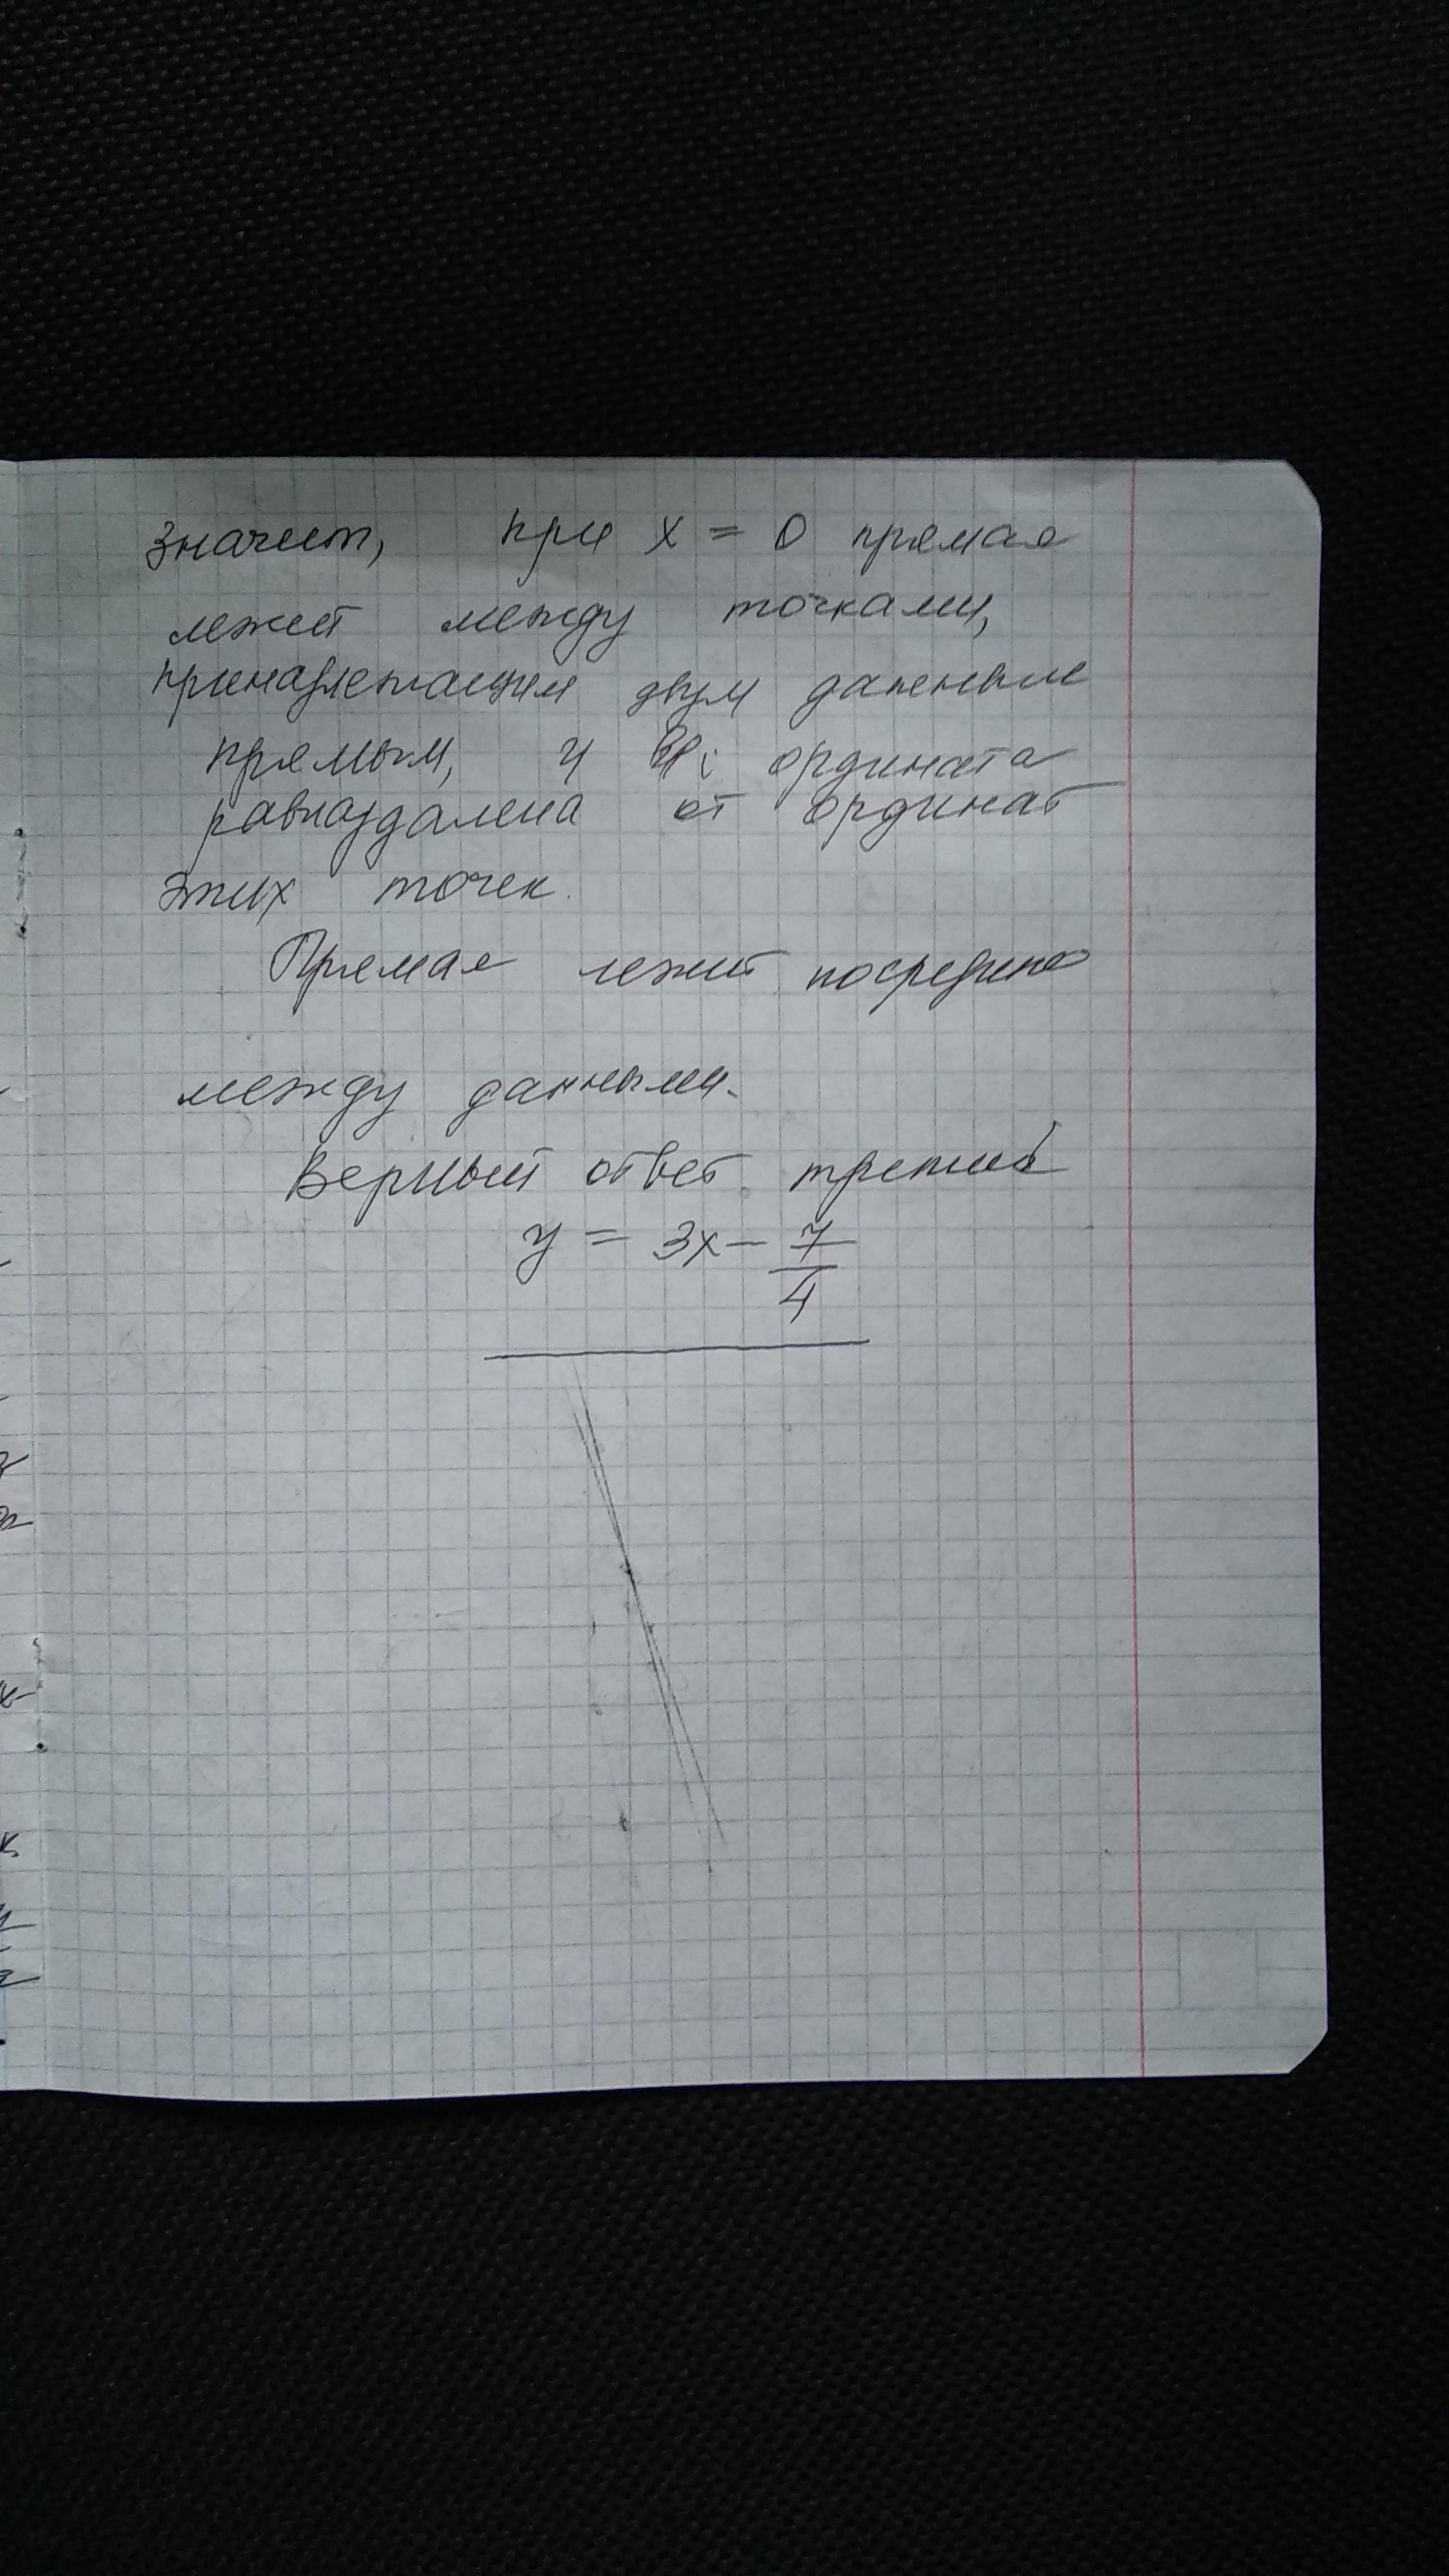 значит, при x = 0 прямая
лежит между точками,
принадлежащим двум данным
прямым, и ордината
равноудалена от ординат
этих точек.
Прямая лежит посредине
между данными.
Верный ответ третий
y = 3x - 7/4